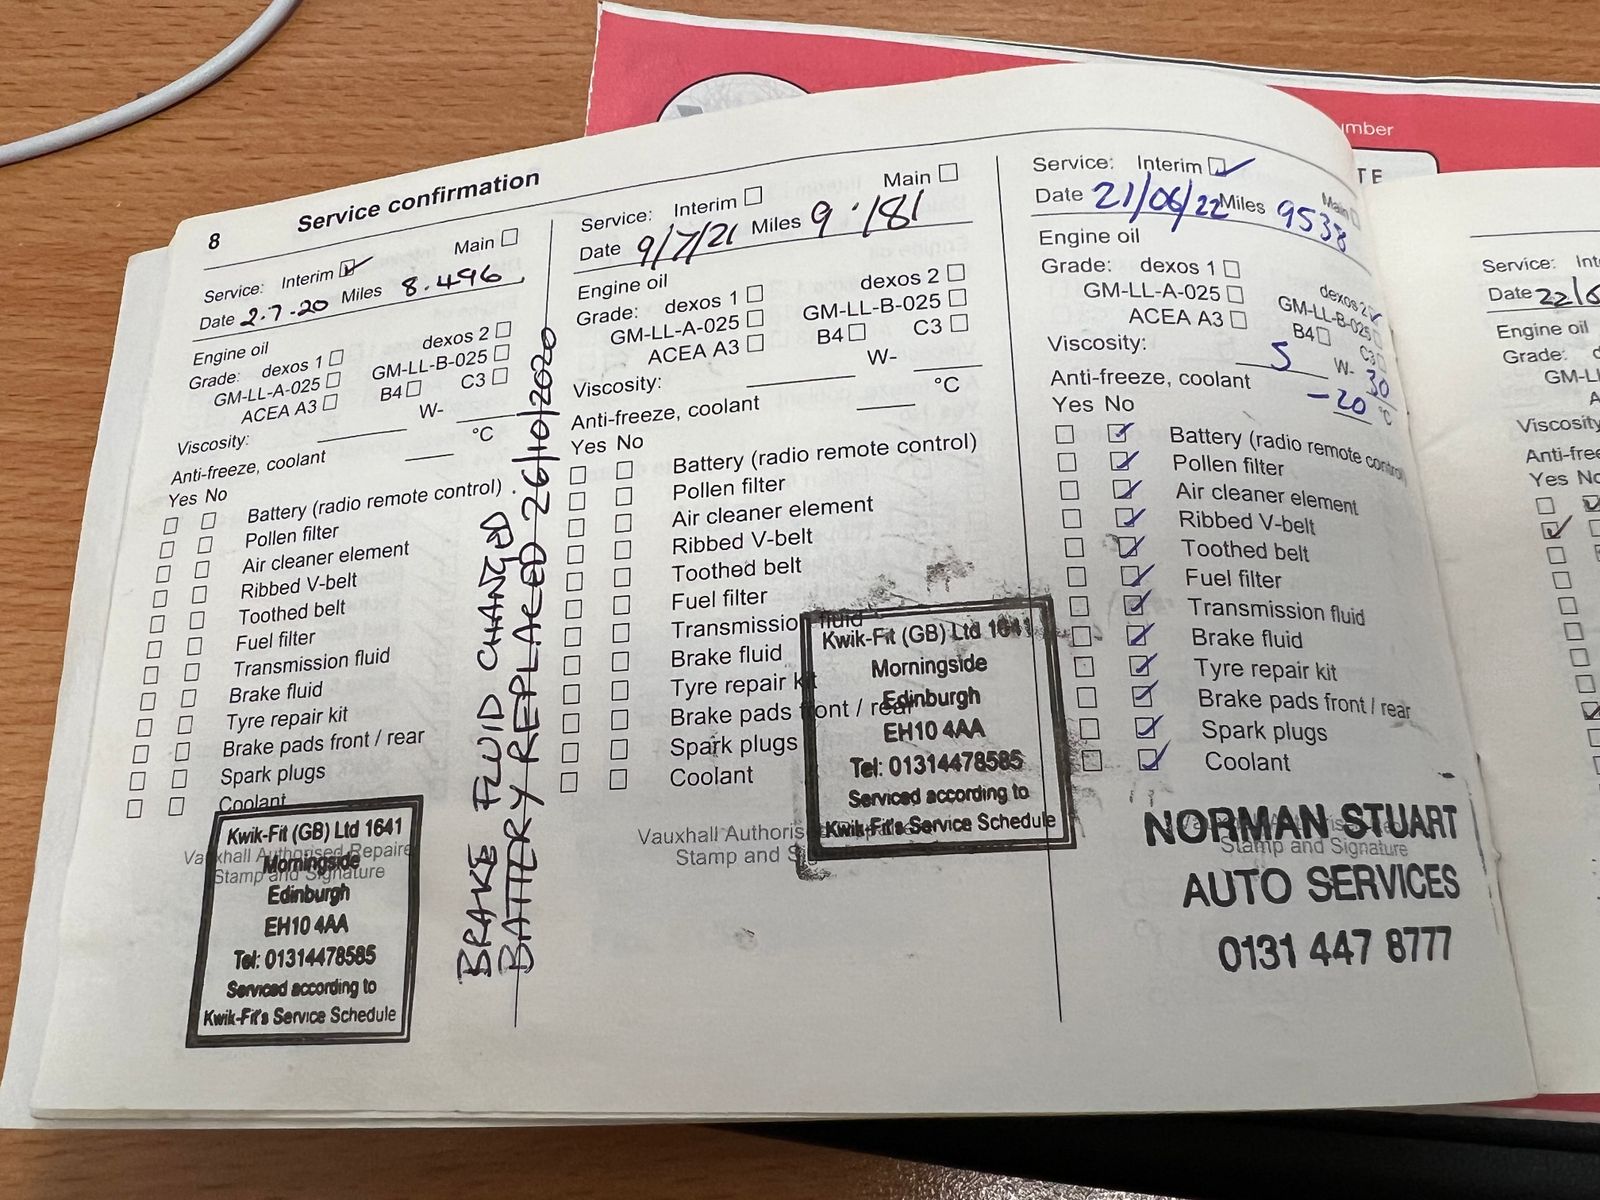 8
Service confirmation
Service: Interim Main
Date 2.7.20 Miles 8.496
Engine oil
Grade: dexos 1 dexos 2
GM-LL-A-025 GM-LL-B-025
ACEA A3 B4 C3
Viscosity: W-
Anti-freeze, coolant °C
Yes No
Battery (radio remote control)
Pollen filter
Air cleaner element
Ribbed V-belt
Toothed belt
Fuel filter
Transmission fluid
Brake fluid
Tyre repair kit
Brake pads front / rear
Spark plugs
Coolant
Vauxhall Authorised Repairer
Stamp and Signature
Kwik-Fit (GB) Ltd 1641
Morningside
Edinburgh
EH10 4AA
Tel: 01314478585
Serviced according to
Kwik-Fit's Service Schedule
BRAKE FLUID CHANGED
BATTERY REPLACED 26/10/2020
Service: Interim Main
Date 9/7/21 Miles 9.181
Engine oil
Grade: dexos 1 dexos 2
GM-LL-A-025 GM-LL-B-025
ACEA A3 B4 C3
Viscosity: W-
Anti-freeze, coolant °C
Yes No
Battery (radio remote control)
Pollen filter
Air cleaner element
Ribbed V-belt
Toothed belt
Fuel filter
Transmission fluid
Brake fluid
Tyre repair kit
Brake pads front / rear
Spark plugs
Coolant
Vauxhall Authorised
Stamp and
Kwik-Fit (GB) Ltd 1641
Morningside
Edinburgh
EH10 4AA
Tel: 01314478585
Serviced according to
Kwik-Fit's Service Schedule
Service: Interim Main
Date 21/06/22 Miles 9538
Engine oil
Grade: dexos 1 dexos 2
GM-LL-A-025 GM-LL-B-025
ACEA A3 B4 C3
Viscosity: 5 W-30
Anti-freeze, coolant -20 °C
Yes No
Battery (radio remote control)
Pollen filter
Air cleaner element
Ribbed V-belt
Toothed belt
Fuel filter
Transmission fluid
Brake fluid
Tyre repair kit
Brake pads front / rear
Spark plugs
Coolant
Stamp and Signature
NORMAN STUART
AUTO SERVICES
0131 447 8777
Service: Int
Date 22/
Engine oil
Grade:
GM-L
Viscosity
Anti-free
Yes No
mber
TE